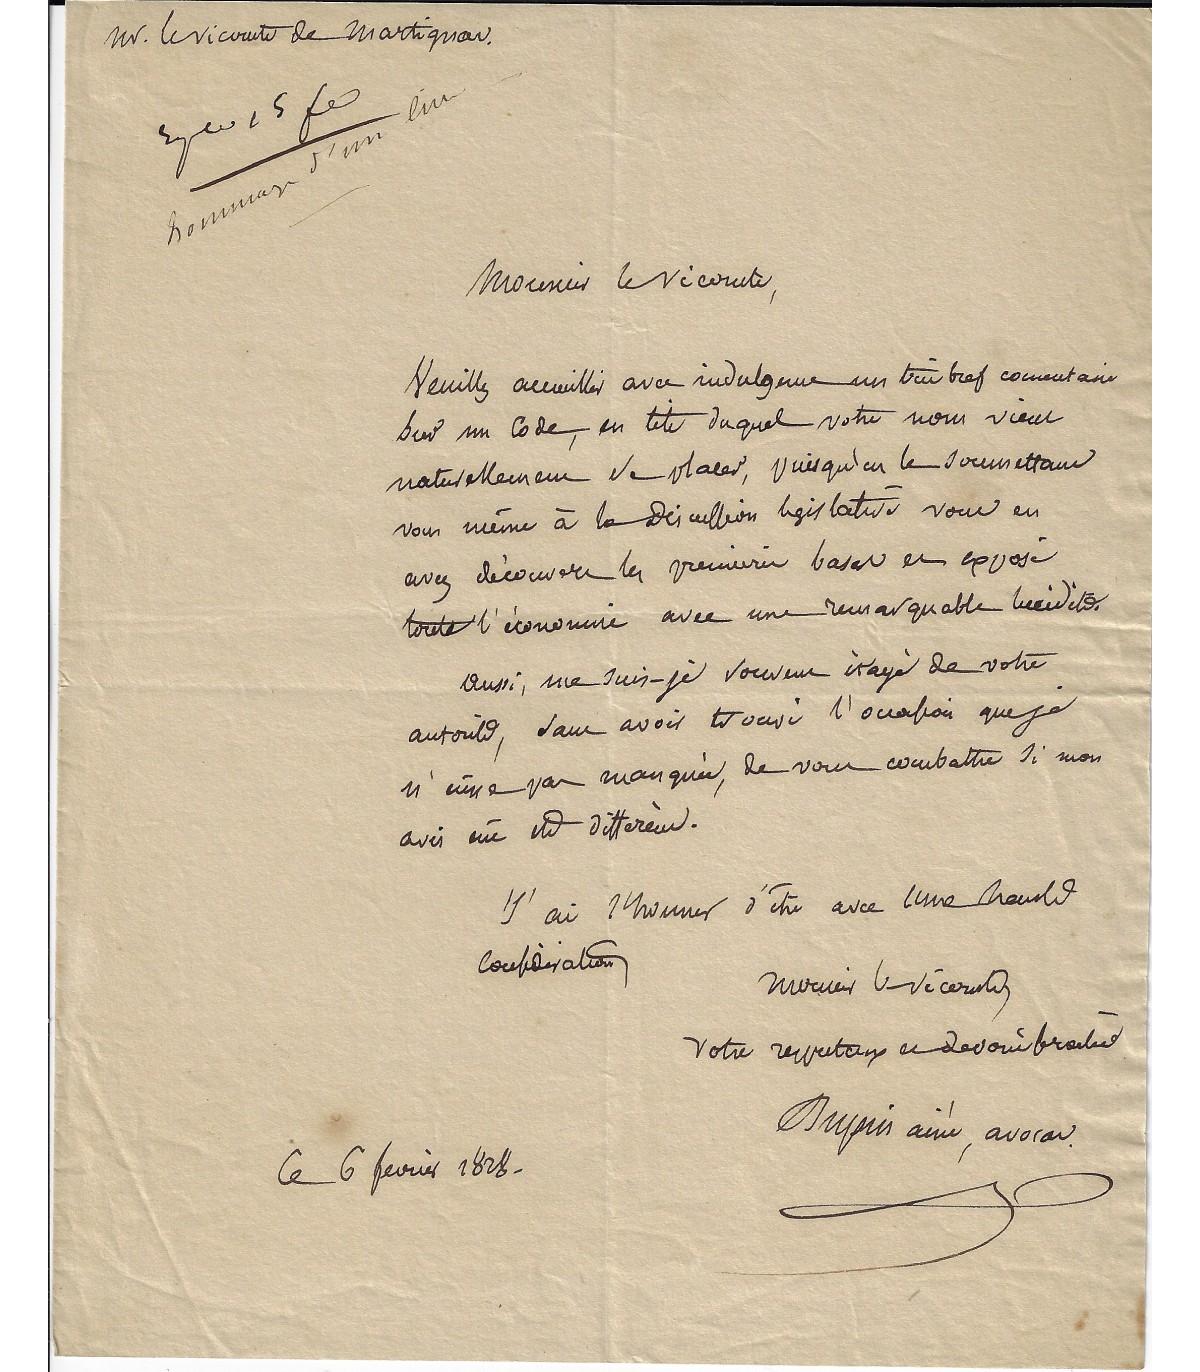 Mr. le vicomte de Martignac.
15 fe
hommage d'un livre
Monsieur le Vicomte,
Veuillez accueillir avec indulgence un très bref comentaire
sur un Code, en tête duquel votre nom vient
naturellement se placer, puisqu'en le soumettant
vous même à la discussion législative vous en
avez découvert les premières bases et exposé
toute l'économie avec une remarquable lucidité.
Aussi, me suis-je souvent étayé de votre
autorité, sans avoir trouvé l'occasion que je
n'eusse pas manquée, de vous combattre si mon
avis eût été différent.
J'ai l'honneur d'être avec une haute
considération,
Monsieur le Vicomte,
Votre respectueux et dévoué
Dupin ainé, avocat.
Ce 6 février 1828.